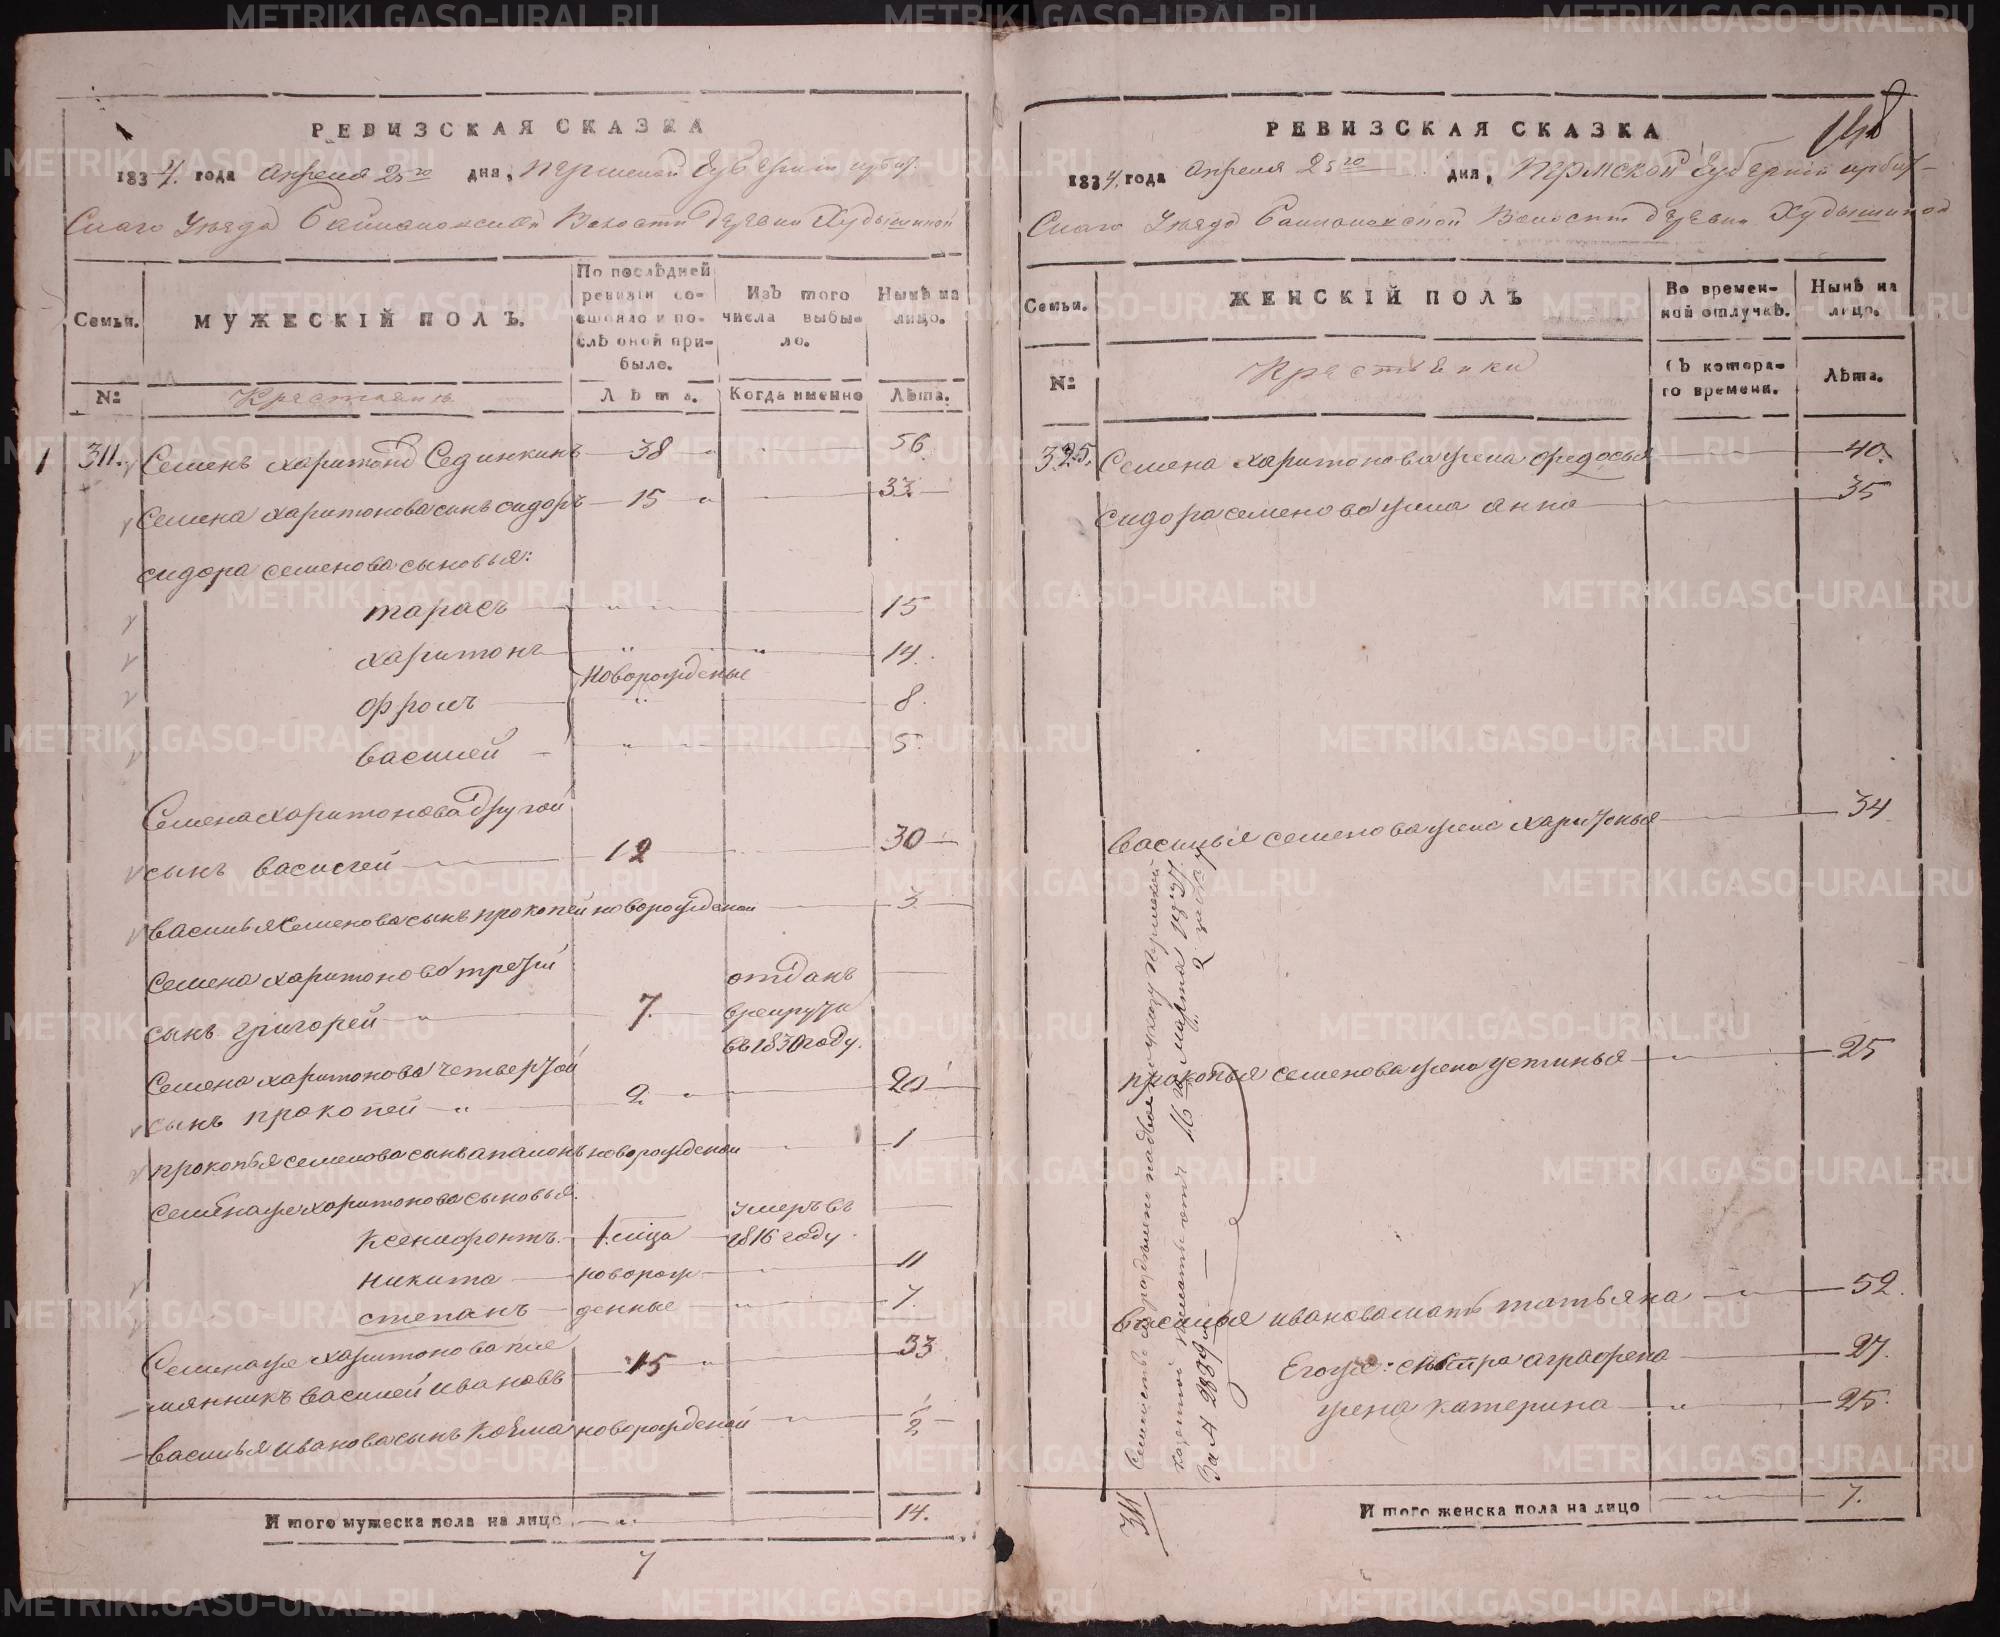 РЕВИЗСКАЯ СКАЗКА
1834. года апреля 25го дня, пермской губернии ирбит-
скаго уезда Волости деревни Худышиной
Семьи.
МУЖЕСКІЙ ПОЛЪ.
По послѣдней ревизіи состояло и послѣ оной прибыло.
Изъ того числа выбыло.
Нынѣ на лицо.
№
Крестьянъ
Лѣта.
Когда именно
Лѣта.
1 311. Семенъ харитоновъ Сединкинъ 38 56.
Семена харитонова сынъ сидоръ 15 33
сидора семенова сыновья:
тарасъ 15
харитонъ 14.
Новорожденые
фролъ 8.
василей 5.
Семена харитонова другой
сынъ василей 12 30
василья семенова сынъ прокопей новорожденой 3
Семена харитонова третий отданъ
сынъ григорей 7. врекруты
въ 1830 году.
Семена харитонова четвертой
сынъ прокопей 2 20
прокопья семенова сынъ новорожденой 1
семена же харитонова сыновья: умеръ въ
Ксенофонтъ 1. 1816 году.
никита новорож- 11
степанъ денные 7.
Семена же харитонова пле
мянникъ василей ивановъ 15 33
василья иванова сынъ козма новорожденой ½
Итого мужеска пола на лицо 14.
148
РЕВИЗСКАЯ СКАЗКА
1834. года апреля 25го дня, пермской губерніи ирбит-
скаго уезда Волости деревни Худышиной
Семьи.
ЖЕНСКІЙ ПОЛЪ
Во временной отлучкѣ.
Нынѣ на лицо.
№
Крестьянки
Съ котораго времени.
Лѣта.
325. Семена харитонова жена федосья 40.
сидора семенова жена анна 35
василья семенова жена харитонья 34
прокопья семенова жена устинья 25
василья иванова мать татьяна 52.
Егоже: сестра аграфена 27.
жена катерина 25.
Семейство разделено надвое по указу пермской
казенной палаты отъ 16го марта 1837.
За № 2889м
311
Итого женска пола на лицо 7.